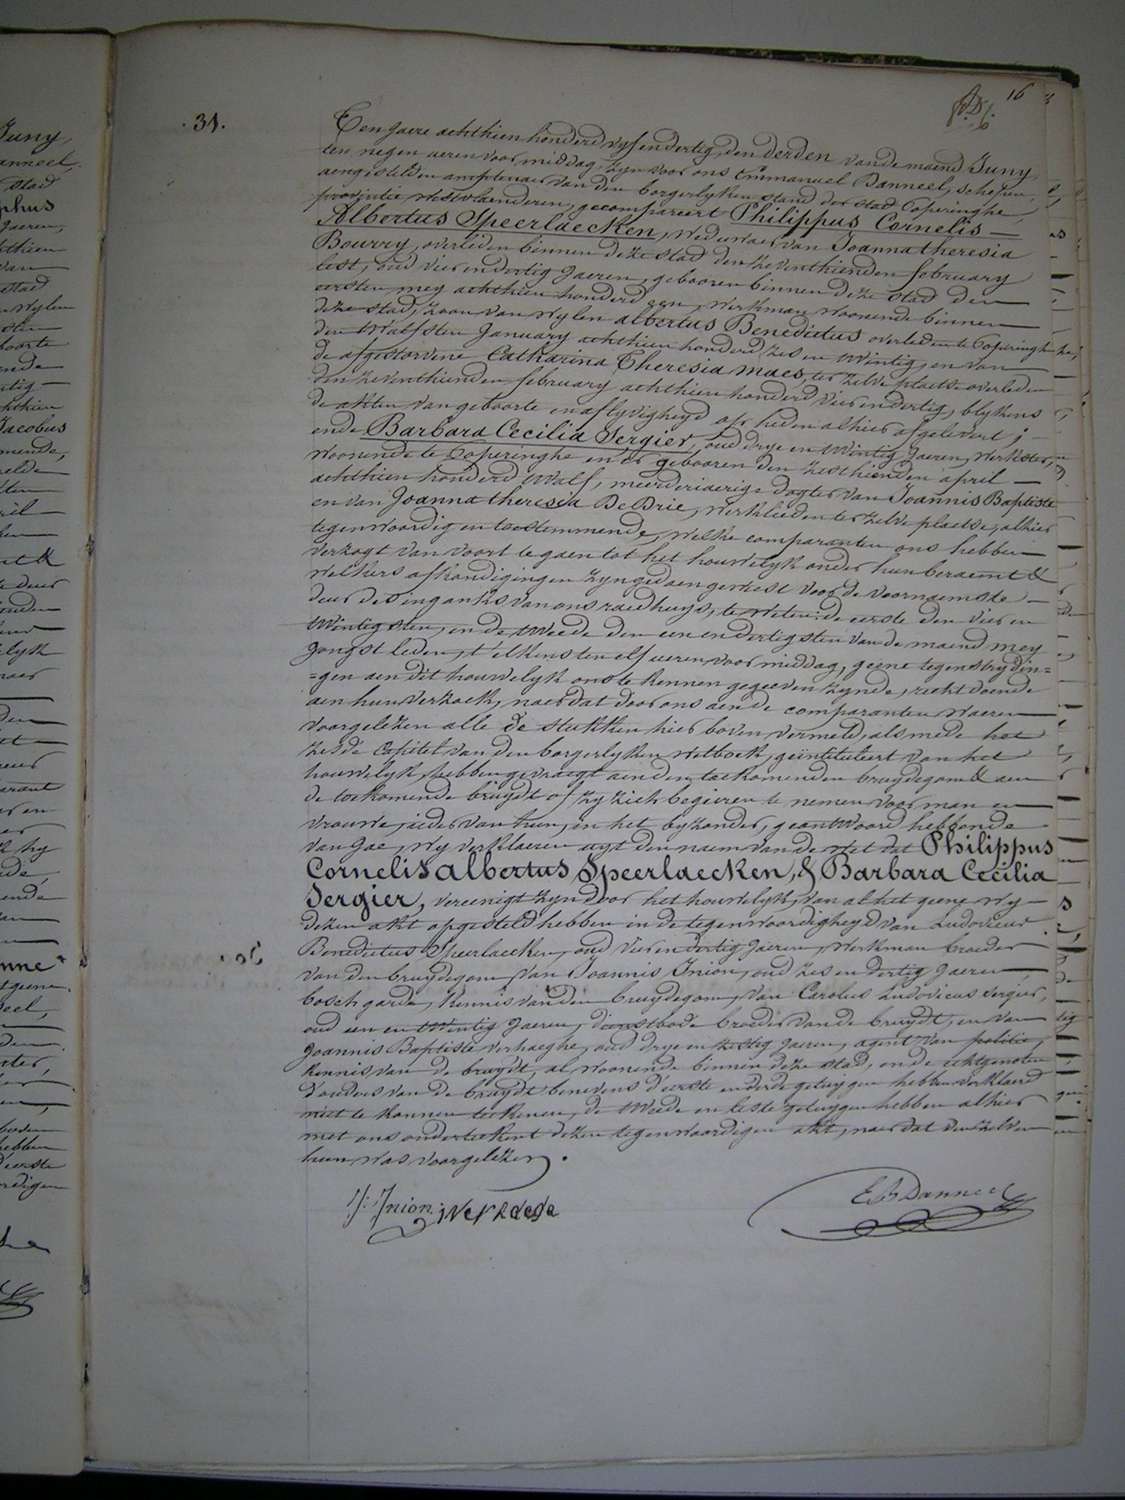 16
.31.
Ten jaere achthien honderd vyf en dertig, den derden van de maend Juny
ten negen ueren voor middag, zyn voor ons Emmanuel Danneel, schepen,
aengestelden amptenaer van den borgerlyken stand der stad Poperinghe,
provintie westvlaenderen, gecompareert Philippus Cornelis
Albertus Speerlaecken, weduwaer van Joanna theresia
Bourry, overleden binnen deze stad den zeventhienden february
lest, oud vier en dertig Jaeren, gebooren binnen deze stad den
eersten mey achthien honderd een, werkman woonende binnen
deze stad, zoon van wylen albertus Benedictus overleden te Poperinghe
den twalfsten January achthien honderd zes en twintig, en van
de afgestorvene Catharina Theresia Maes, ter zelve plaetse overleden
den zeventhienden february achthien honderd vier en dertig, blykens
de akten van geboorte en aflyvigheyd op heden alhier afgelevert;
ende Barbara Cecilia Sergier, oud drye en twintig Jaeren, werkster,
woonende te Poperinghe en er gebooren den zesthienden april
achthien honderd twalf, meerderjaerige dogter van Joannis Baptiste
en van Joanna theresia De Brie, werklieden ter zelve plaetse, alhier
tegenwoordig en toestemmende, welke comparanten ons hebben
verzogt van voort te gaen tot het houwelyk onder hun beraemt &
welkers afkondigingen zyn gedaen geweest voor de voornaemste
deur des ingangs van ons raedhuys, te weten: de eerste den vier en
twintigsten, en de tweede den een en dertigsten van de maend mey
jongst leden, t'elkens ten elf ueren voor middag, geene tegenstrydin=
=gen aen dit houwelyk ons te kennen gegeeven zynde, recht doende
aen hun verzoek, naer dat door ons aen de comparanten waeren
voorgelezen alle de stukken hier boven vermeld, als mede het
zesde Capitel van den borgerlyken wetboek, geïntituleert van het
houwelyk, hebben gevraegt aen den toekomenden bruydegom & aen
de toekomende bruydt of zy zich begeeren te nemen voor man en
vrouwe, ieder van hun, en het byzonder, geantwoord hebbende
van Jae, wy verklaeren uyt den naem van de wet dat Philippus
Cornelis albertus Speerlaecken, & Barbara Cecilia
Sergier, vereenigt zyn door het houwelyk, van al het geene wy
dezen akt opgesteld hebben in de tegenwoordigheyd van Ludovicus
Benedictus Speerlaecken, oud vier en dertig Jaeren, werkman broeder
van den bruydegom, van Joannis Inion, oud zes en dertig Jaeren,
bosch garde, kennis van den bruydegom, van Carolus Ludovicus Sergier,
oud een en twintig Jaeren, dienstbode broeder van de bruydt, en van
Joannis Baptiste Verhaeghe, oud drye en zestig Jaeren, agent van politie,
kennis van de bruydt, al woonende binnen deze stad, en de echtgenoten
d'ouders van de bruydt benevens d'eerste en derde getuygen hebben verklaerd
niet te konnen teekenen, de tweede en leste getuygen hebben alhier
met ons onderteekent dezen tegenwoordigen akt, naer dat den zelven
hun was voorgelezen.
J: Inion
EBDanneel